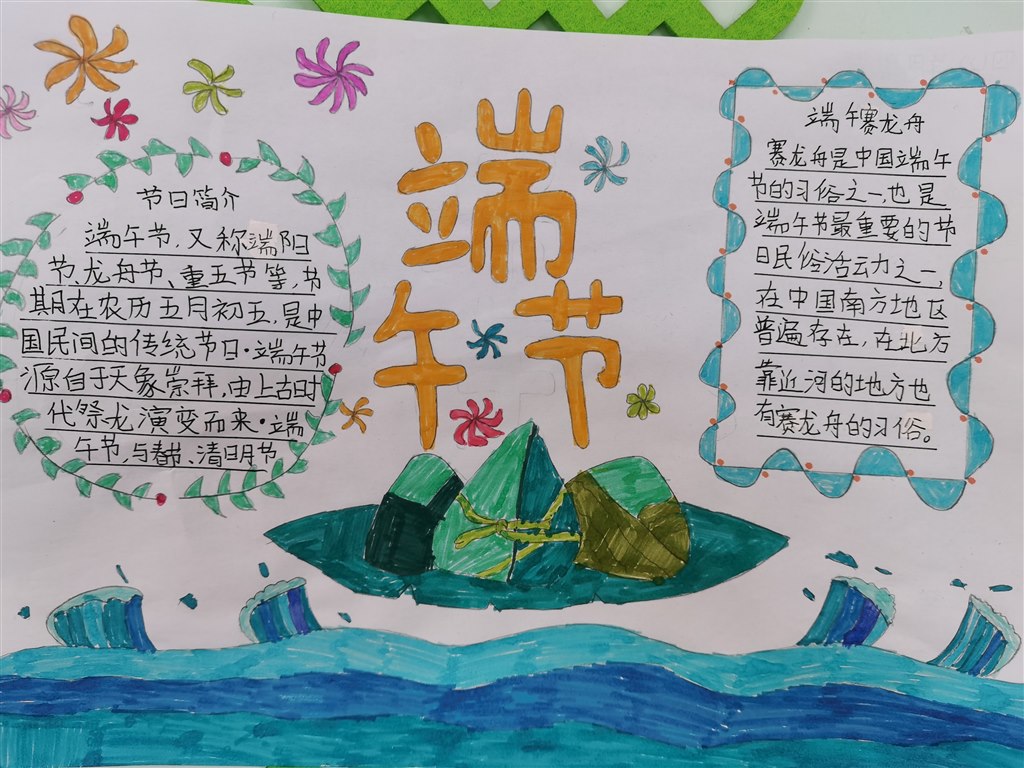 端午节
节日简介
端午节,又称端阳
节、龙舟节、重五节等,节
期在农历五月初五,是中
国民间的传统节日·端午节
源自于天象崇拜,由上古时
代祭龙演变而来·端
午节,与春节、清明节
端午赛龙舟
赛龙舟是中国端午
节的习俗之一,也是
端午节最重要的节
日民俗活动之一,
在中国南方地区
普遍存在,在北方
靠近河的地方也
有赛龙舟的习俗。